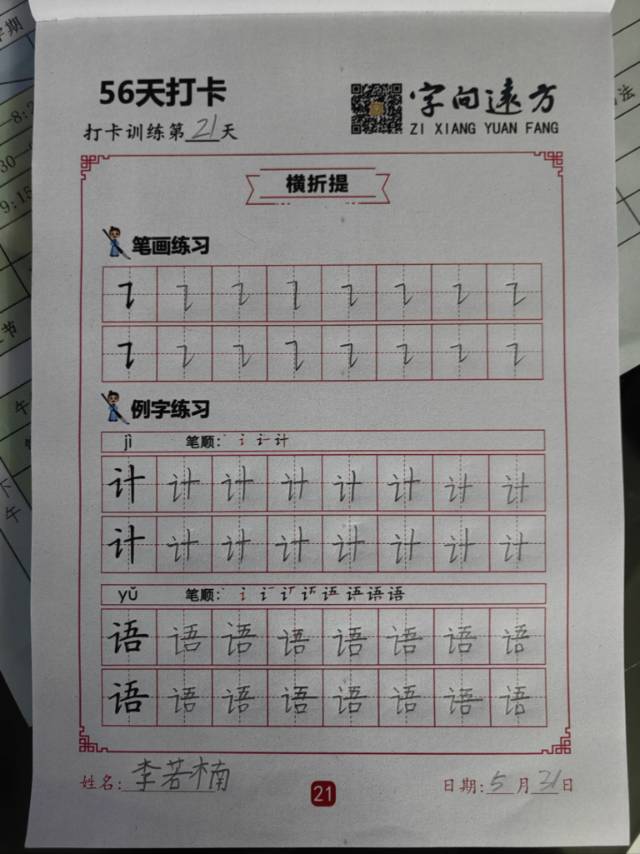 56天打卡
打卡训练第21天
字向远方
ZI XIANG YUAN FANG
横折提
笔画练习
例字练习
jì 笔顺:
计 计 计 计 计 计 计 计
计 计 计 计 计 计 计 计
yǔ 笔顺:
语 语 语 语 语 语 语 语
语 语 语 语 语 语 语 语
姓名:李若楠
21
日期:5月31日